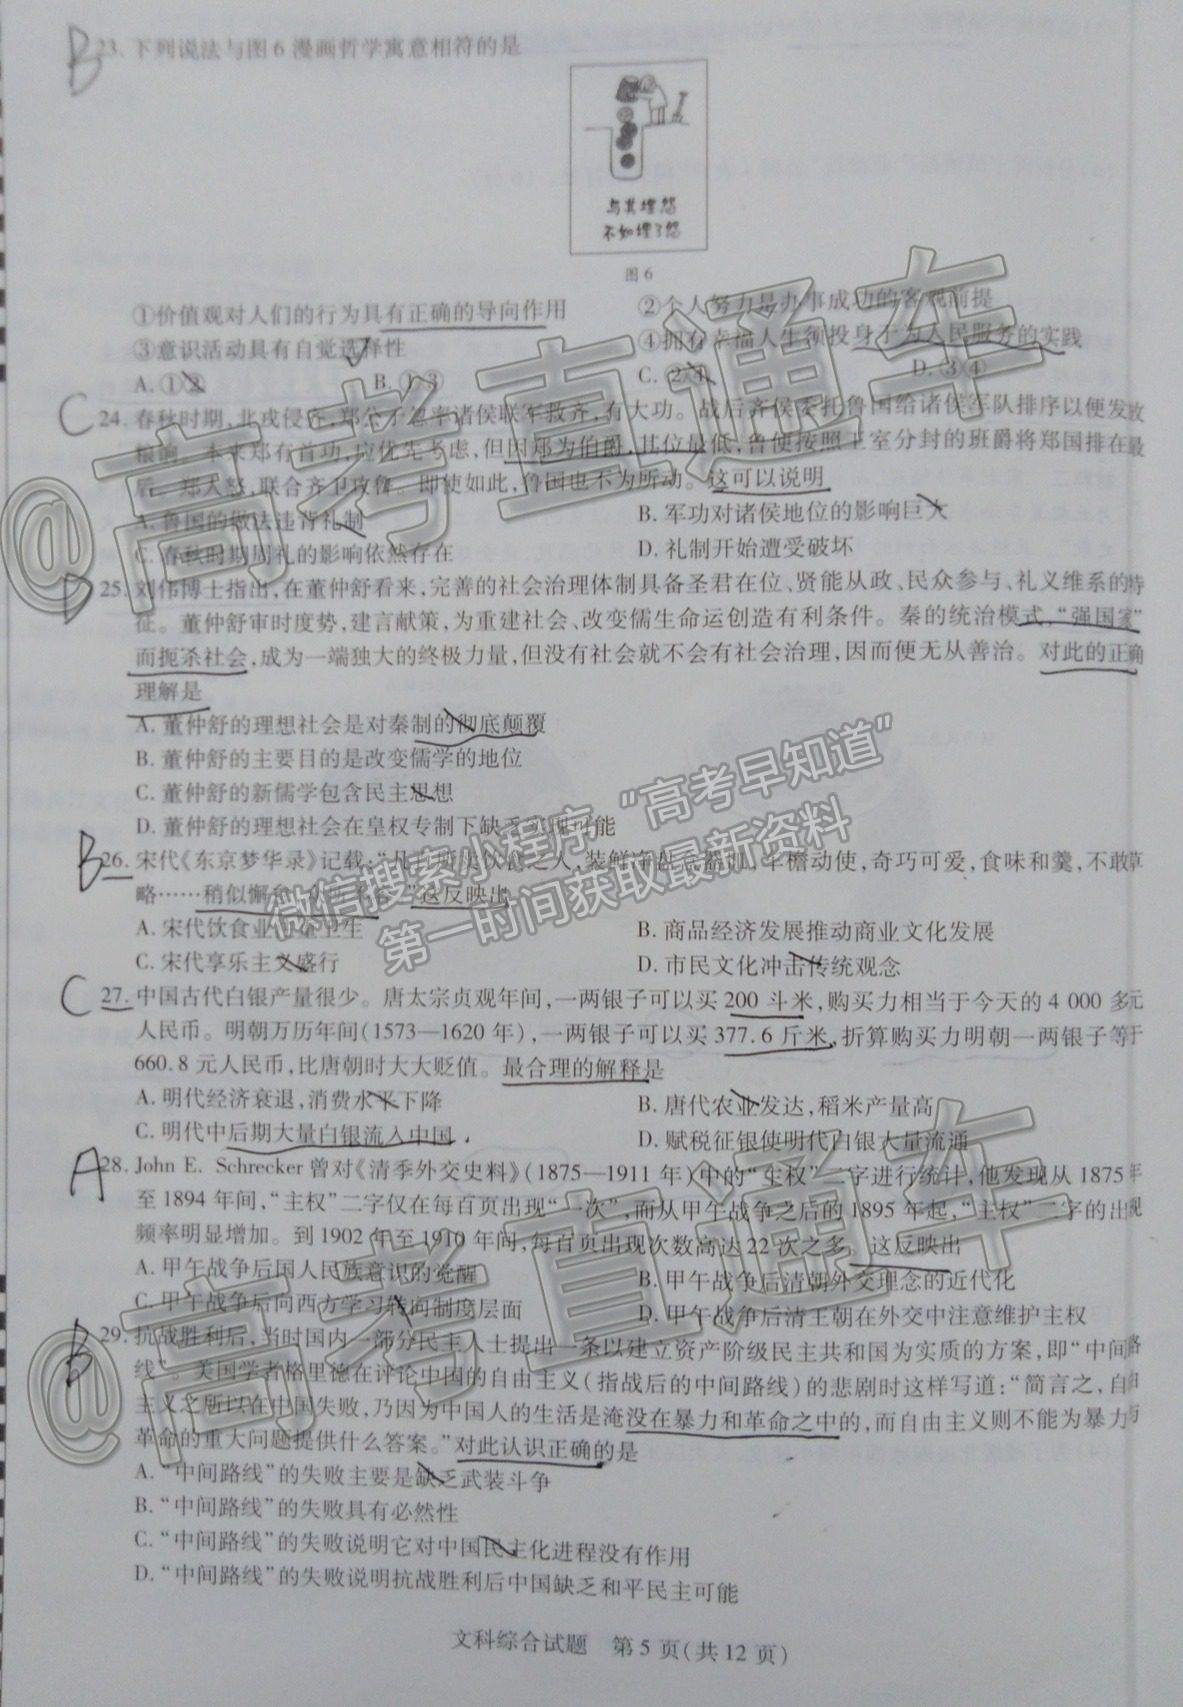 B 23. 下列说法与图6漫画哲学寓意相符的是
与其埋怨
不如埋了怨
图6
①价值观对人们的行为具有正确的导向作用 ②个人努力是办事成功的客观前提
③意识活动具有自觉选择性 ④拥有幸福人生须投身于为人民服务的实践
A. ①② B. ①③ C. ②④ D. ③④
C 24. 春秋时期,北戎侵齐,郑公子忽率诸侯联军救齐,有大功。战后齐侯委托鲁国给诸侯军队排序以便发放
粮饷。本来郑有首功,应优先考虑,但因郑为伯爵,其位最低,鲁便按照王室分封的班爵将郑国排在最
后。郑人怒,联合齐卫攻鲁。即使如此,鲁国也不为所动。这可以说明
A. 鲁国的做法违背礼制 B. 军功对诸侯地位的影响巨大
C. 春秋时期周礼的影响依然存在 D. 礼制开始遭受破坏
D 25. 刘伟博士指出,在董仲舒看来,完善的社会治理体制具备圣君在位、贤能从政、民众参与、礼义维系的特
征。董仲舒审时度势,建言献策,为重建社会、改变儒生命运创造有利条件。秦的统治模式,“强国家”
而扼杀社会,成为一端独大的终极力量,但没有社会就不会有社会治理,因而便无从善治。对此的正确
理解是
A. 董仲舒的理想社会是对秦制的彻底颠覆
B. 董仲舒的主要目的是改变儒学的地位
C. 董仲舒的新儒学包含民主思想
D. 董仲舒的理想社会在皇权专制下缺乏实现可能
B 26. 宋代《东京梦华录》记载:“凡百所卖饮食之人,装鲜净盘合器皿,车檐动使,奇巧可爱,食味和羹,不敢草
略……稍似懈怠,众所不容。”这反映出
A. 宋代饮食业注重卫生 B. 商品经济发展推动商业文化发展
C. 宋代享乐主义盛行 D. 市民文化冲击传统观念
C 27. 中国古代白银产量很少。唐太宗贞观年间,一两银子可以买200斗米,购买力相当于今天的4 000多元
人民币。明朝万历年间(1573—1620年),一两银子可以买377.6斤米,折算购买力明朝一两银子等于
660.8元人民币,比唐朝时大大贬值。最合理的解释是
A. 明代经济衰退,消费水平下降 B. 唐代农业发达,稻米产量高
C. 明代中后期大量白银流入中国 D. 赋税征银使明代白银大量流通
A 28. John E. Schrecker曾对《清季外交史料》(1875—1911年)中的“主权”二字进行统计,他发现从1875年
至1894年间,“主权”二字仅在每百页出现“一次”,而从甲午战争之后的1895年起,“主权”二字的出现
频率明显增加。到1902年至1910年间,每百页出现次数高达22次之多。这反映出
A. 甲午战争后国人民族意识的觉醒 B. 甲午战争后清朝外交理念的近代化
C. 甲午战争后向西方学习转向制度层面 D. 甲午战争后清王朝在外交中注意维护主权
B 29. 抗战胜利后,当时国内一部分民主人士提出一条以建立资产阶级民主共和国为实质的方案,即“中间路
线”。美国学者格里德在评论中国的自由主义(指战后的中间路线)的悲剧时这样写道:“简言之,自由
主义之所以在中国失败,乃因为中国人的生活是淹没在暴力和革命之中的,而自由主义则不能为暴力与
革命的重大问题提供什么答案。”对此认识正确的是
A. “中间路线”的失败主要是缺乏武装斗争
B. “中间路线”的失败具有必然性
C. “中间路线”的失败说明它对中国民主化进程没有作用
D. “中间路线”的失败说明抗战胜利后中国缺乏和平民主可能
文科综合试题 第5页(共12页)
@高考直通车
微信搜索小程序“高考早知道”
第一时间获取最新资料
@高考直通车